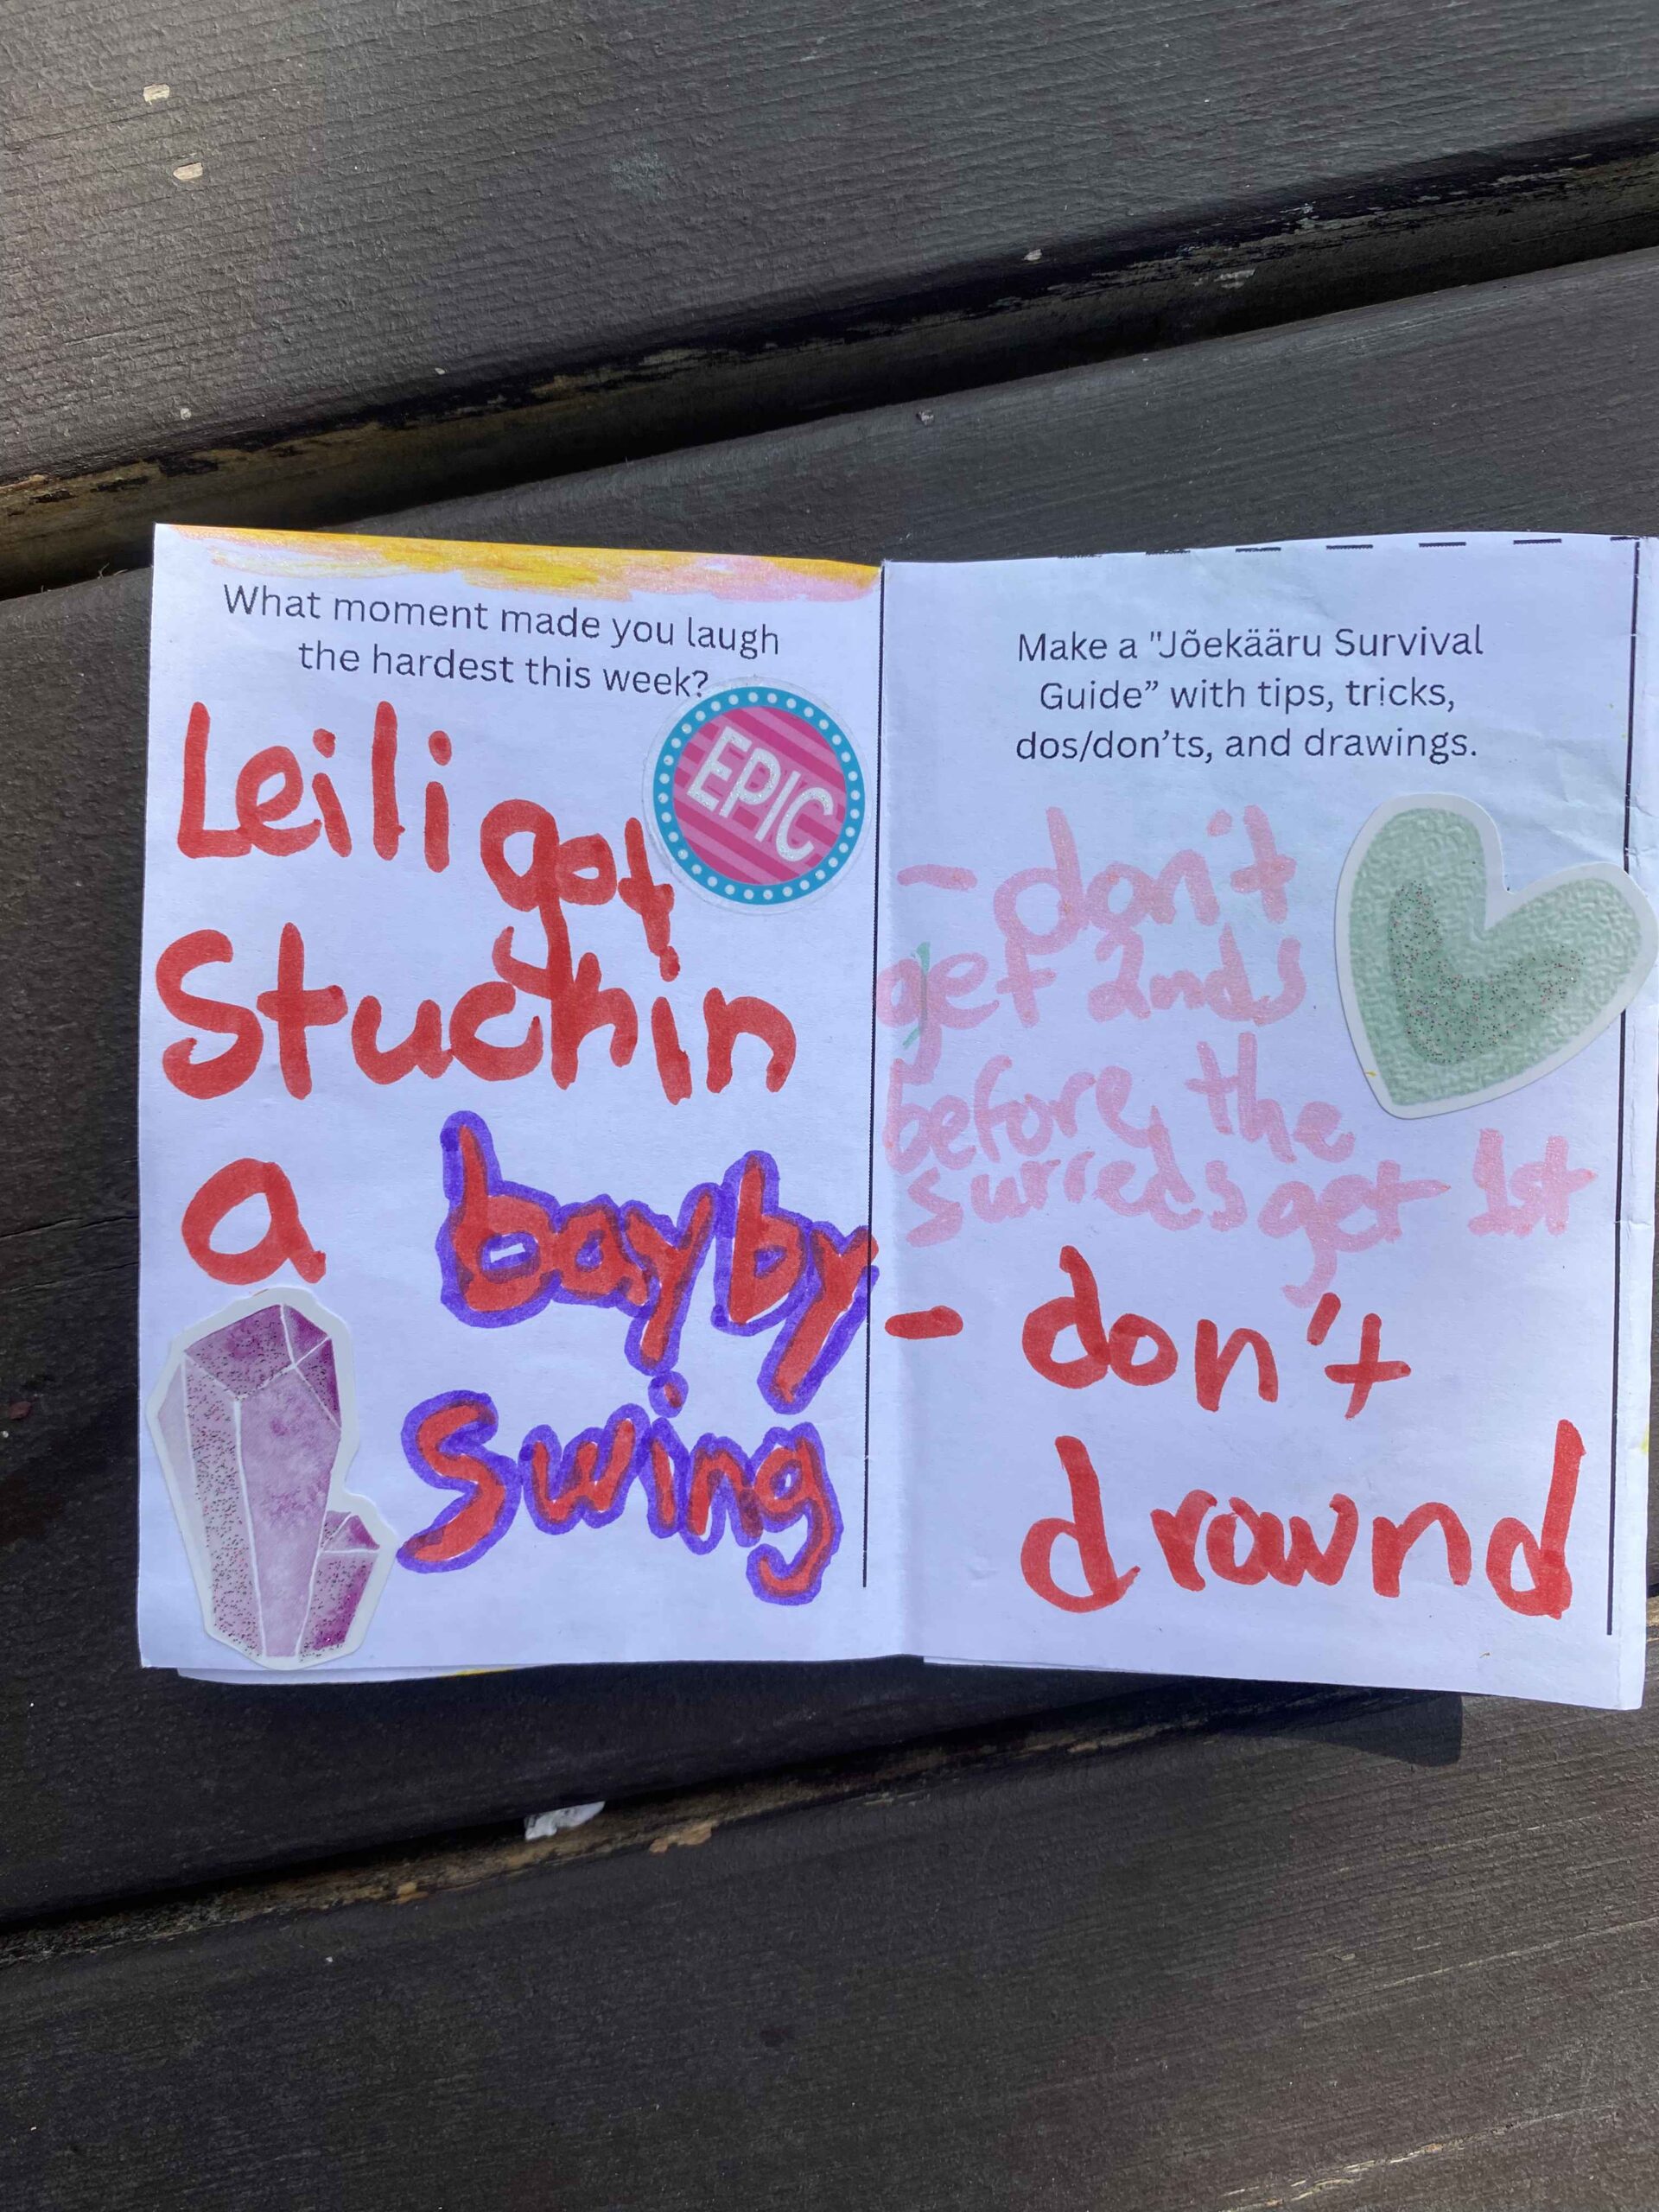 What moment made you laugh
the hardest this week?
EPIC
Leili got
Stuck in
a bayby
Swing
Make a "Jõekääru Survival
Guide” with tips, tricks,
dos/don’ts, and drawings.
- don't
get 2nds
before the
surreds get 1st
- don't
drownd